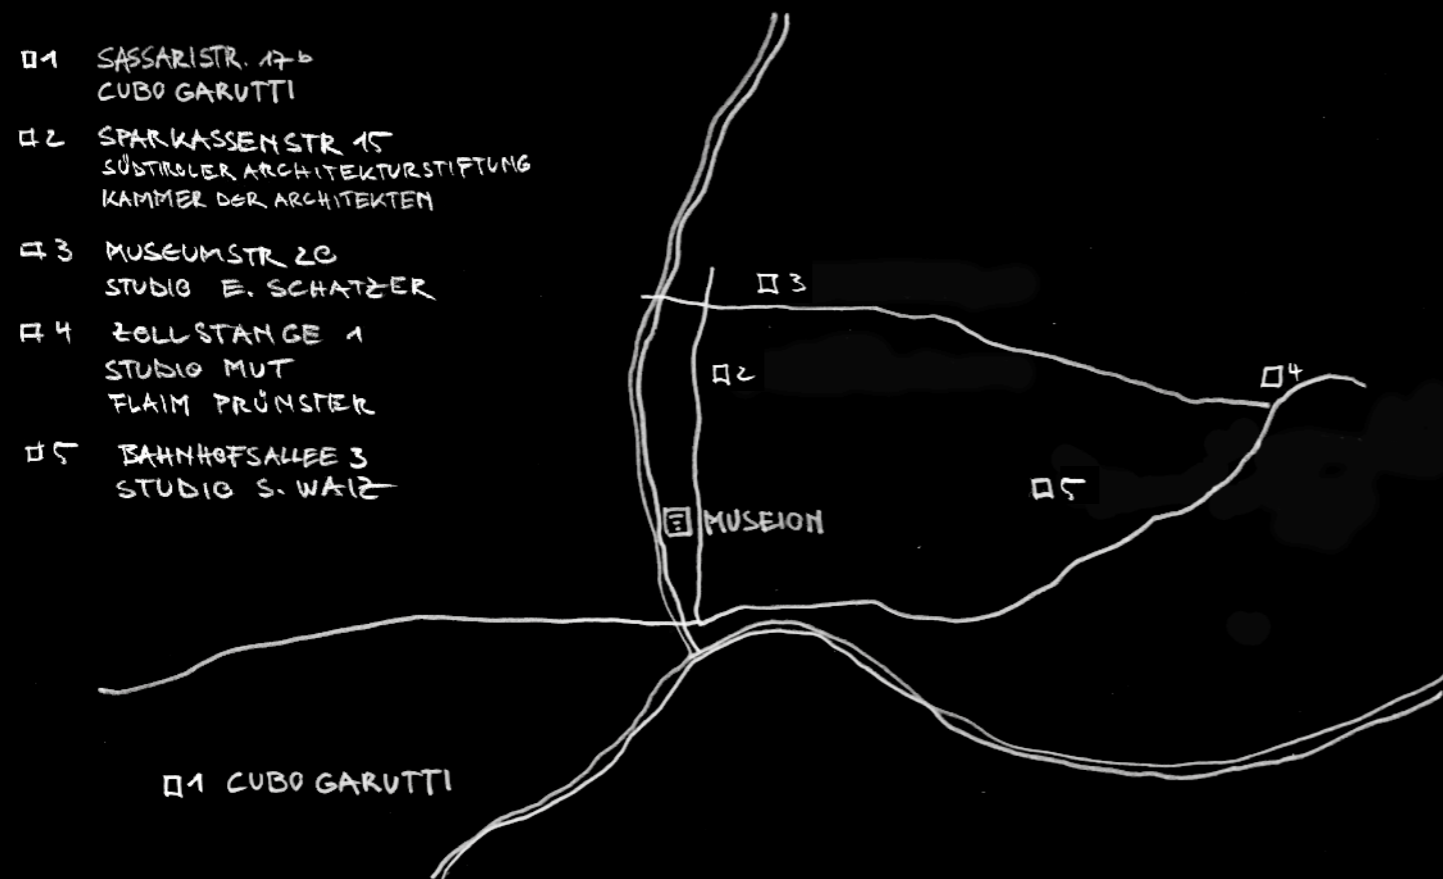 1 SASSARISTR. 17b
CUBO GARUTTI
2 SPARKASSENSTR 15
SÜDTIROLER ARCHITEKTURSTIFTUNG
KAMMER DER ARCHITEKTEN
3 MUSEUMSTR
STUDIO E. SCHATZER
4 ZOLLSTANGE 1
STUDIO MUT
FLAIM PRÜNSTER
5 BAHNHOFSALLEE 3
STUDIO S. WALZ
3
2
4
5
MUSEION
1 CUBO GARUTTI